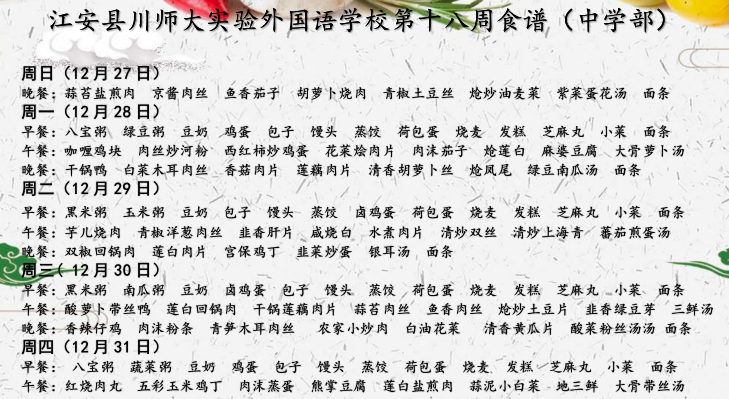 江安县川师大实验外国语学校第十八周食谱（中学部）
周日（12月27日）
晚餐：蒜苔盐煎肉 京酱肉丝 鱼香茄子 胡萝卜烧肉 青椒土豆丝 炝炒油麦菜 紫菜蛋花汤 面条
周一（12月28日）
早餐：八宝粥 绿豆粥 豆奶 鸡蛋 包子 馒头 蒸饺 荷包蛋 烧麦 发糕 芝麻丸 小菜 面条
午餐：咖喱鸡块 肉丝炒河粉 西红柿炒鸡蛋 花菜烩肉片 肉沫茄子 炝莲白 麻婆豆腐 大骨萝卜汤
晚餐：干锅鸭 白菜木耳肉丝 香菇肉片 莲藕肉片 清香胡萝卜丝 炝凤尾 绿豆南瓜汤 面条
周二（12月29日）
早餐：黑米粥 玉米粥 豆奶 包子 馒头 蒸饺 卤鸡蛋 荷包蛋 烧麦 发糕 芝麻丸 小菜 面条
午餐：芋儿烧肉 青椒洋葱肉丝 韭香肝片 咸烧白 水煮肉片 清炒双丝 清炒上海青 蕃茄煎蛋汤
晚餐：双椒回锅肉 莲白肉片 宫保鸡丁 韭菜炒蛋 银耳汤 面条
周三（12月30日）
早餐：黑米粥 南瓜粥 豆奶 卤鸡蛋 包子 馒头 蒸饺 荷包蛋 烧麦 发糕 芝麻丸 小菜 面条
午餐：酸萝卜带丝鸭 莲白回锅肉 干锅莲藕肉片 蒜苔肉丝 鱼香肉丝 炝炒土豆片 韭香绿豆芽 三鲜汤
晚餐：香辣仔鸡 肉沫粉条 青笋木耳肉丝 农家小炒肉 白油花菜 清香黄瓜片 酸菜粉丝汤汤 面条
周四（12月31日）
早餐： 八宝粥 蔬菜粥 豆奶 鸡蛋 包子 馒头 蒸饺 荷包蛋 烧麦 发糕 芝麻丸 小菜 面条
午餐：红烧肉丸 五彩玉米鸡丁 肉沫蒸蛋 熊掌豆腐 莲白盐煎肉 蒜泥小白菜 地三鲜 大骨带丝汤